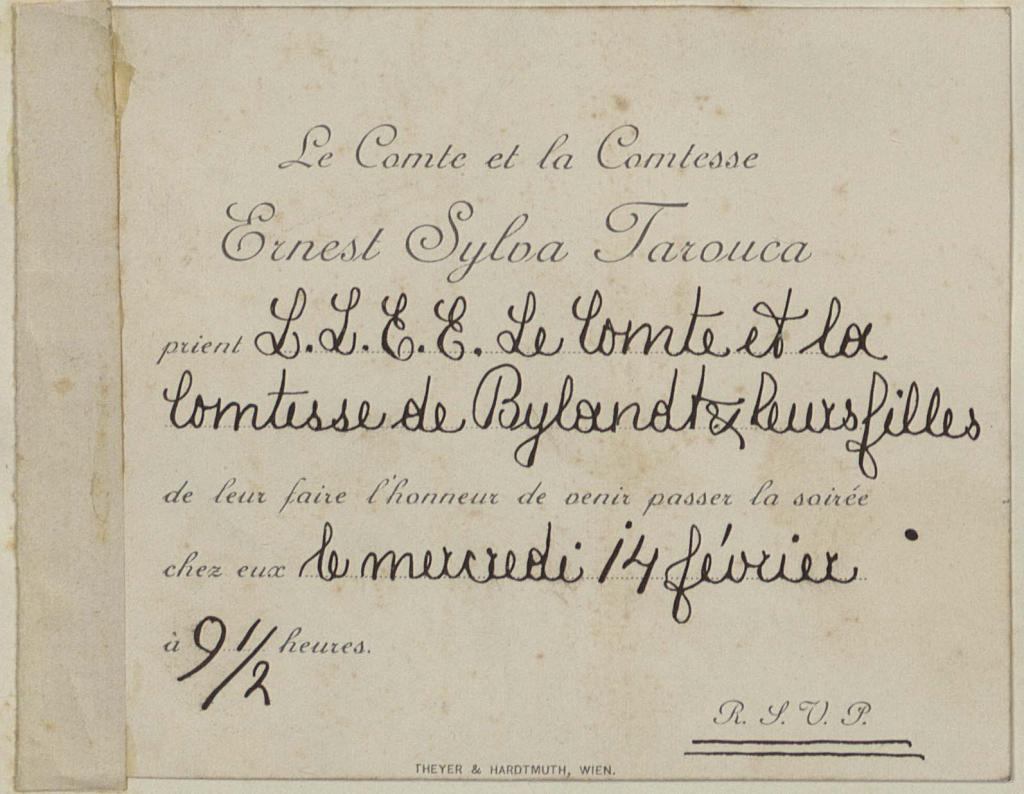 Le Comte et la Comtesse
Ernest Sylva Tarouca
prient L.L.E.E. Le Comte et la
Comtesse de Bylandt & leurs filles
de leur faire l'honneur de venir passer la soirée
chez eux le mercredi 14 février
à 9 1/2 heures.
R. S. V. P.
THEYER & HARDTMUTH, WIEN.